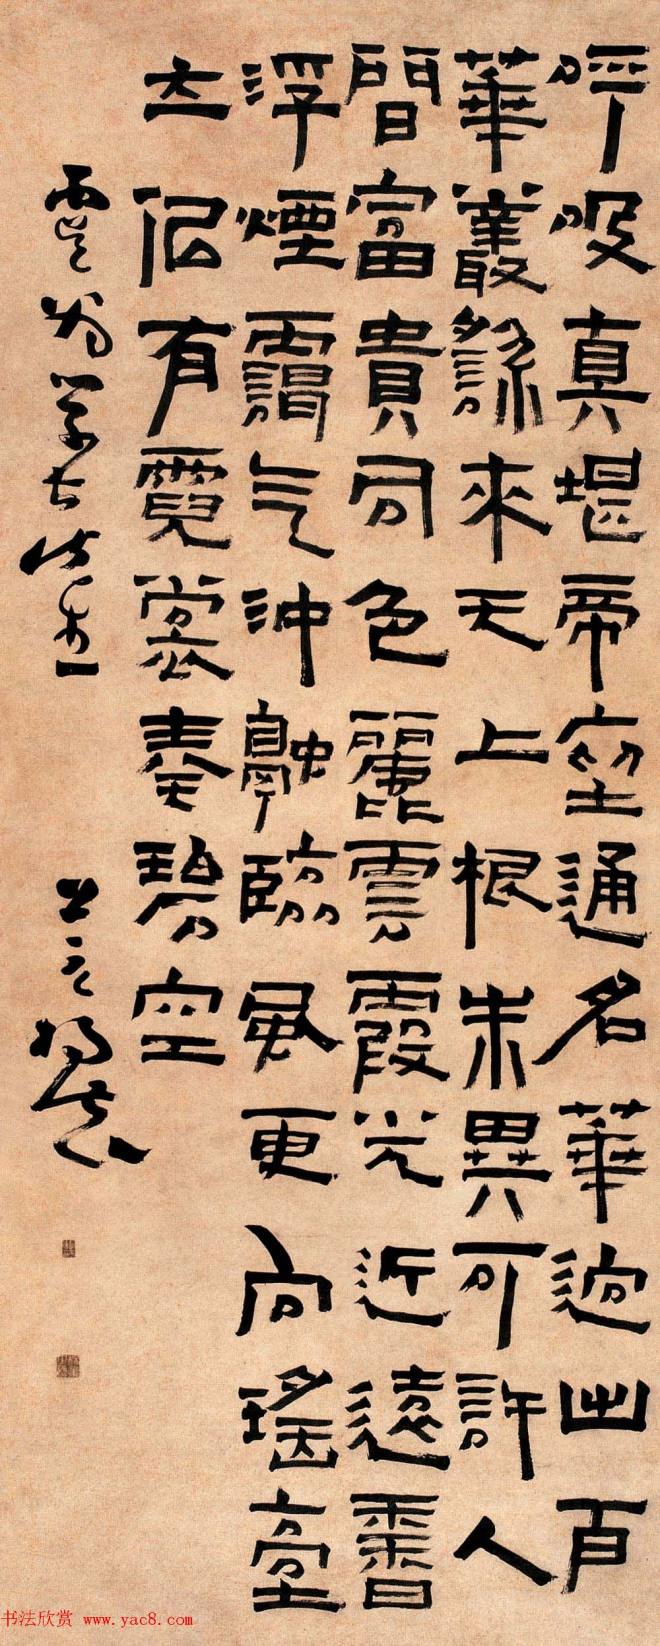 呼吸真堪帝座通名華逈出百
華叢繇來天上根朱異可許人
間富貴同色麗雲霞光近遠香
浮煙靄气沖融臨風更向瑤臺
立佀有霓裳奏碧空
书法欣赏 www.yac8.com